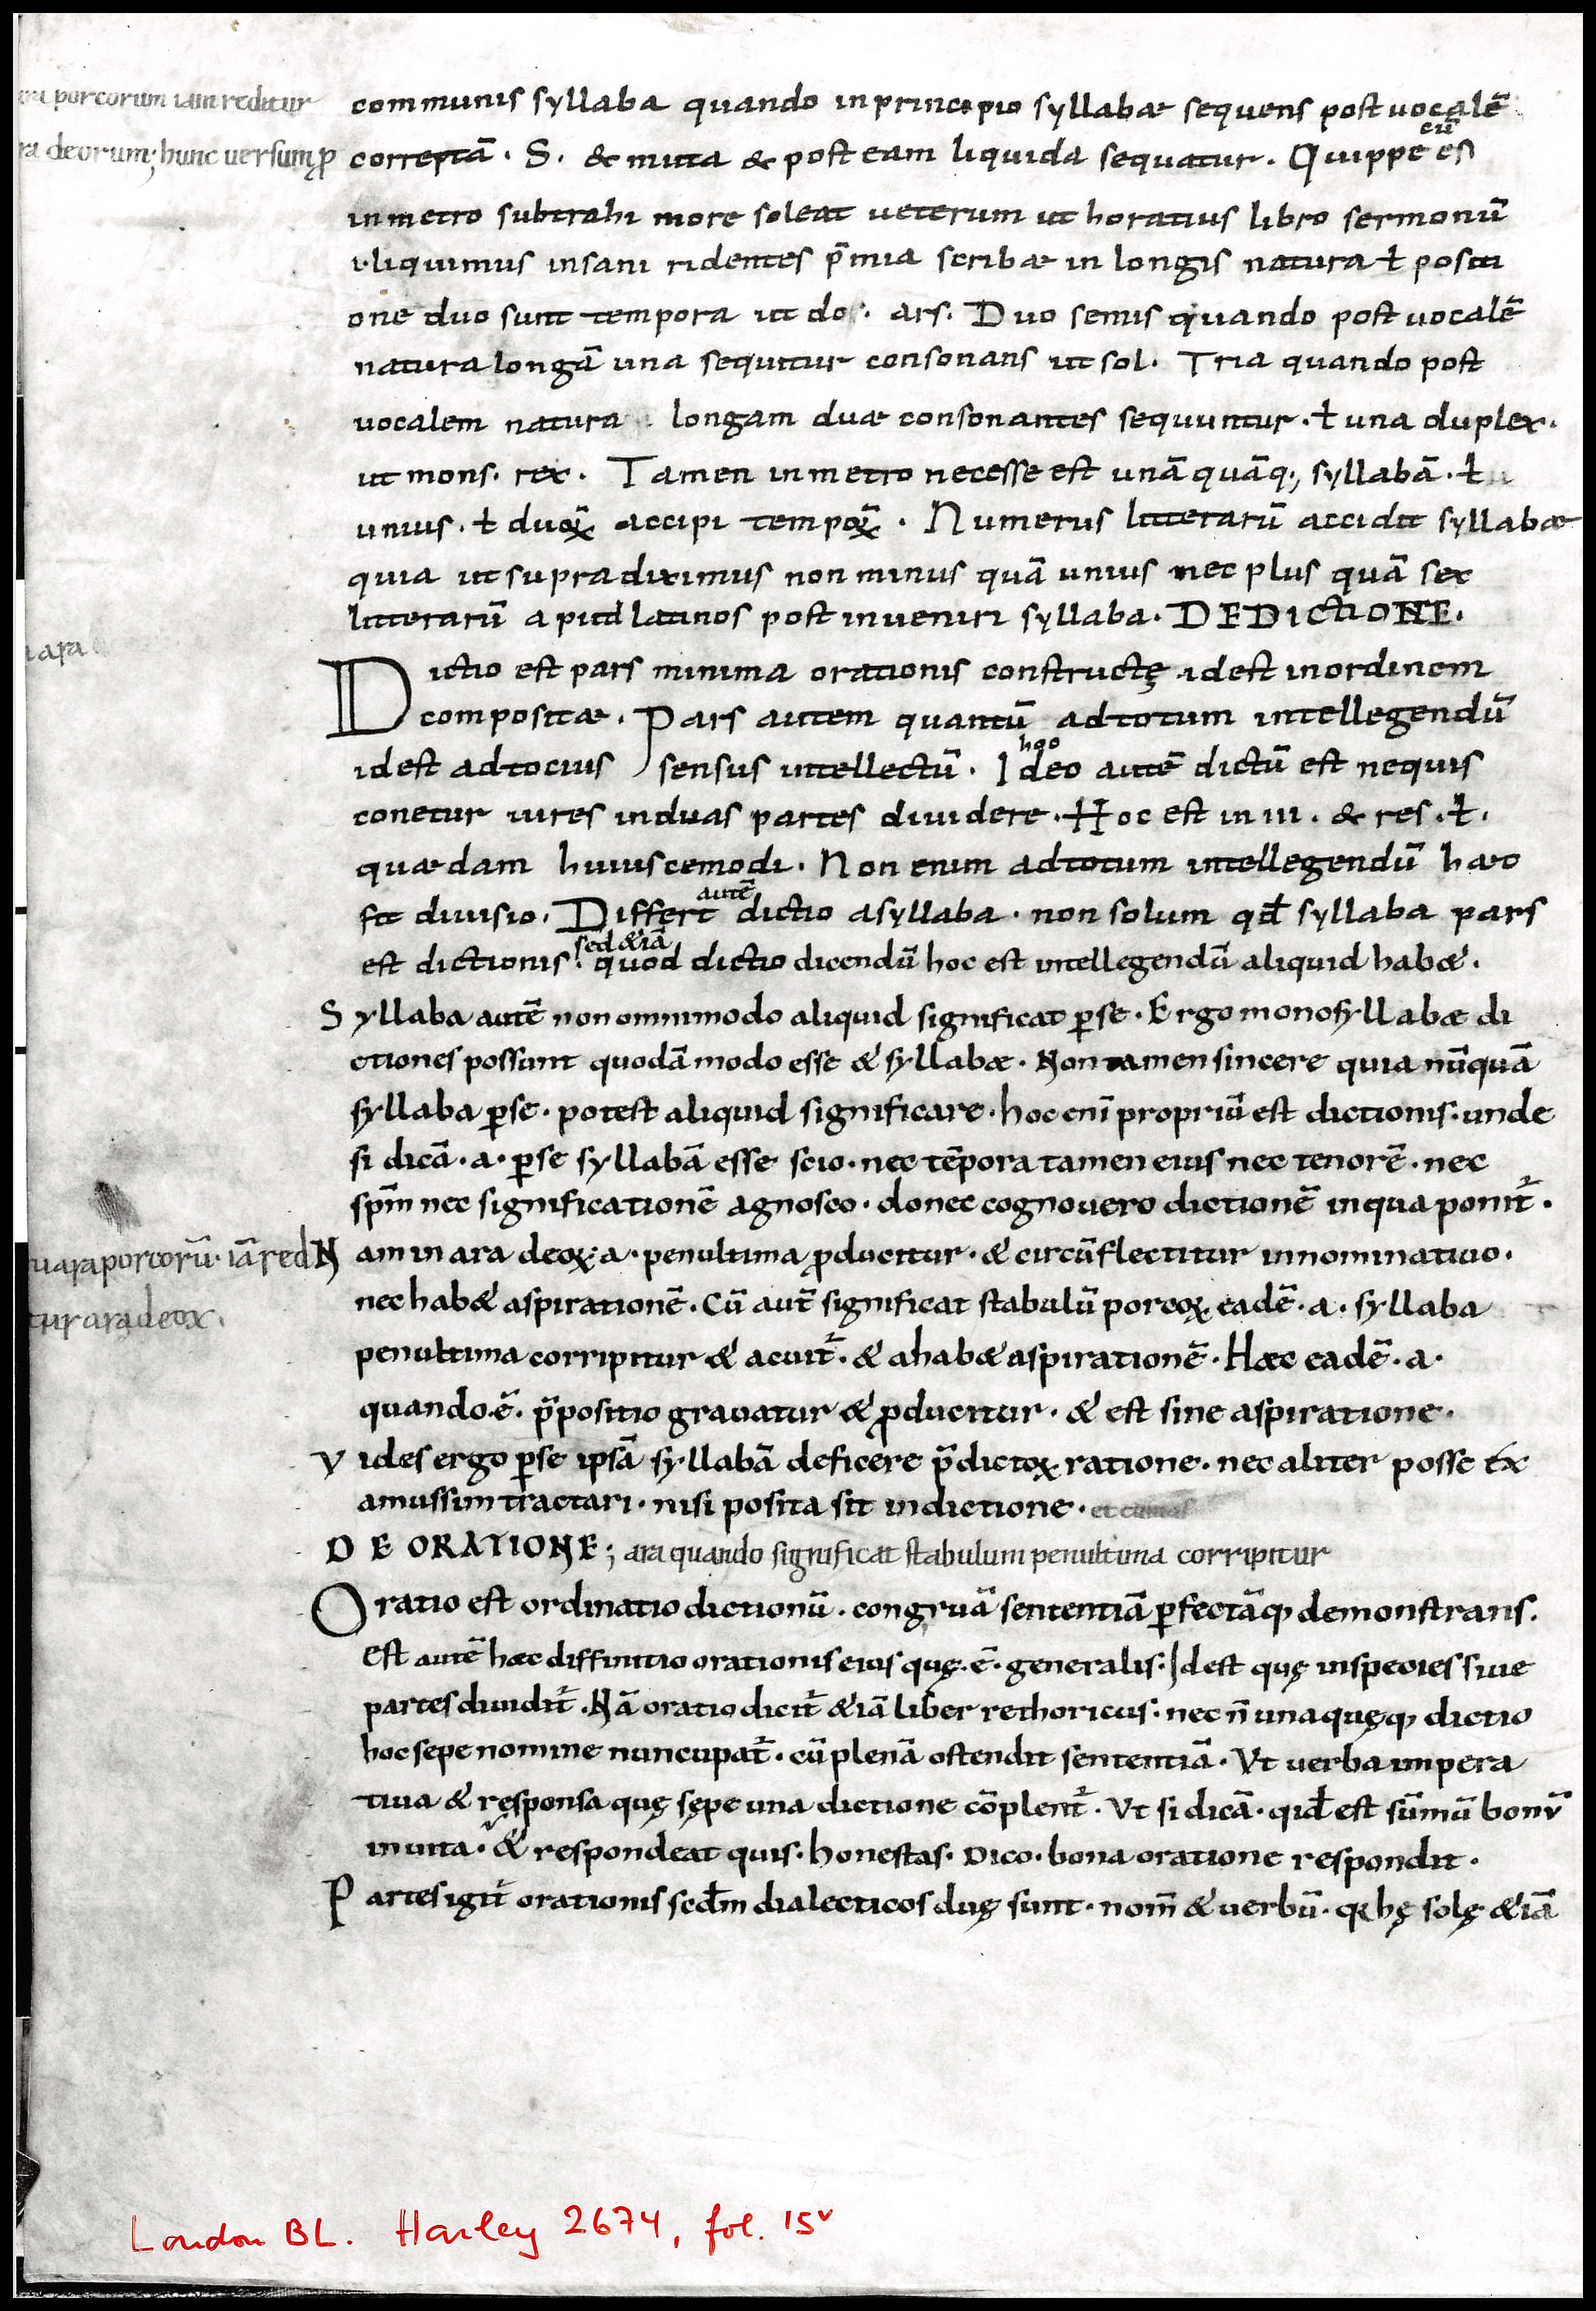 porcorum iam reditur
ra deorum; hunc uersum ꝓ
communis syllaba quando inprincipio syllabae sequens post uocalē
correptā. S. & muta & post eam liquida sequatur. Quippe
cū
inmetro subtrahi more soleat ueterum ut horatius libro sermonū
.i. liquimus insani ridentes p̄mia scribae in longis natura ł positi
one duo sunt tempora ut dos. ars. Duo semis quando post uocalē
natura longā una sequitur consonans ut sol. Tria quando post
uocalem natura longam duae consonantes sequuntur. ł una duplex.
ut mons. rex. Tamen inmetro necesse est unā quāq; syllabā. ł
unius. ł duoꝝ accipi tempoꝝ. Numerus litterarū accidit syllabae
quia ut supra diximus non minus quā unius nec plus quā sex
litterarū apud latinos post inueniri syllaba. DEDICTIONE.
Dictio est pars minima orationis constructę idest inordinem
compositae. Pars autem quantū adtotum intellegendū
idest adtocius sensus intellectū. Ideo autē dictū est nequis
hoc
conetur uires induas partes diuidere. Hoc est in ui. & res. ł.
quaedam huiuscemodi. Non enim adtotum intellegendū haec
fit diuisio. Differt dictio asyllaba. non solum qđ syllaba pars
autē
est dictionis. quod dictio dicendū hoc est intellegendū aliquid hab&.
sed &iā
Syllaba autē non omnimodo aliquid significat ꝑse. Ergo monosyllabae di
ctiones possunt quodā modo esse & syllabae. Non tamen sincere quia nūquā
syllaba ꝑse. potest aliquid significare. hoc enī propriū est dictionis. unde
si dicā. a. ꝑse syllabā esse scio. nec tēpora tamen eius nec tenorē. nec
spm̄ nec significationē agnosco. donec cognouero dictionē inqua ponit᷑.
uaraporcorū. iā red
Nam in ara deoꝝ. a. penultima ꝓducitur. & circūflectitur innominatiuo.
tur ara deoꝝ.
nec hab& aspirationē. Cū aut̄ significat stabulū porcoꝝ eadē. a. syllaba
penultima corripitur & acuit᷑. & ahab& aspirationē. Haec eadē. a.
quando.ē. p̄positio grauatur & ꝓducitur. & est sine aspiratione.
Vides ergo ꝑse ipsā syllabā deficere p̄dictoꝝ ratione. nec aliter posse ex
amussim tractari. nisi posita sit indictione.
DE ORATIONE; ara quando significat stabulum penultima corripitur
Oratio est ordinatio dictionū. congruā sententiā ꝑfectāq; demonstrans.
Est autē haec diffinitio orationis eius quę.ē. generalis. Idest quę inspecies siue
partes diuidit᷑. Nā oratio dicit᷑ &iā liber rethoricus. nec n̄ unaquęq; dictio
hoc sepe nomine nuncupat᷑. cū plenā ostendit sententiā. Vt uerba impera
tiua & ręsponsa quę sępe una dictione cōplent᷑. Vt si dicā. qiđ est sūmū bonū
inuita. & respondeat quis. honestas. Dico. bona oratione respondit.
Partes igit᷑ orationis scđm dialecticos duę sunt. nom̄ & uerbū. ꝗ hę solę &iā
London BL. Harley 2674, fol. 15v